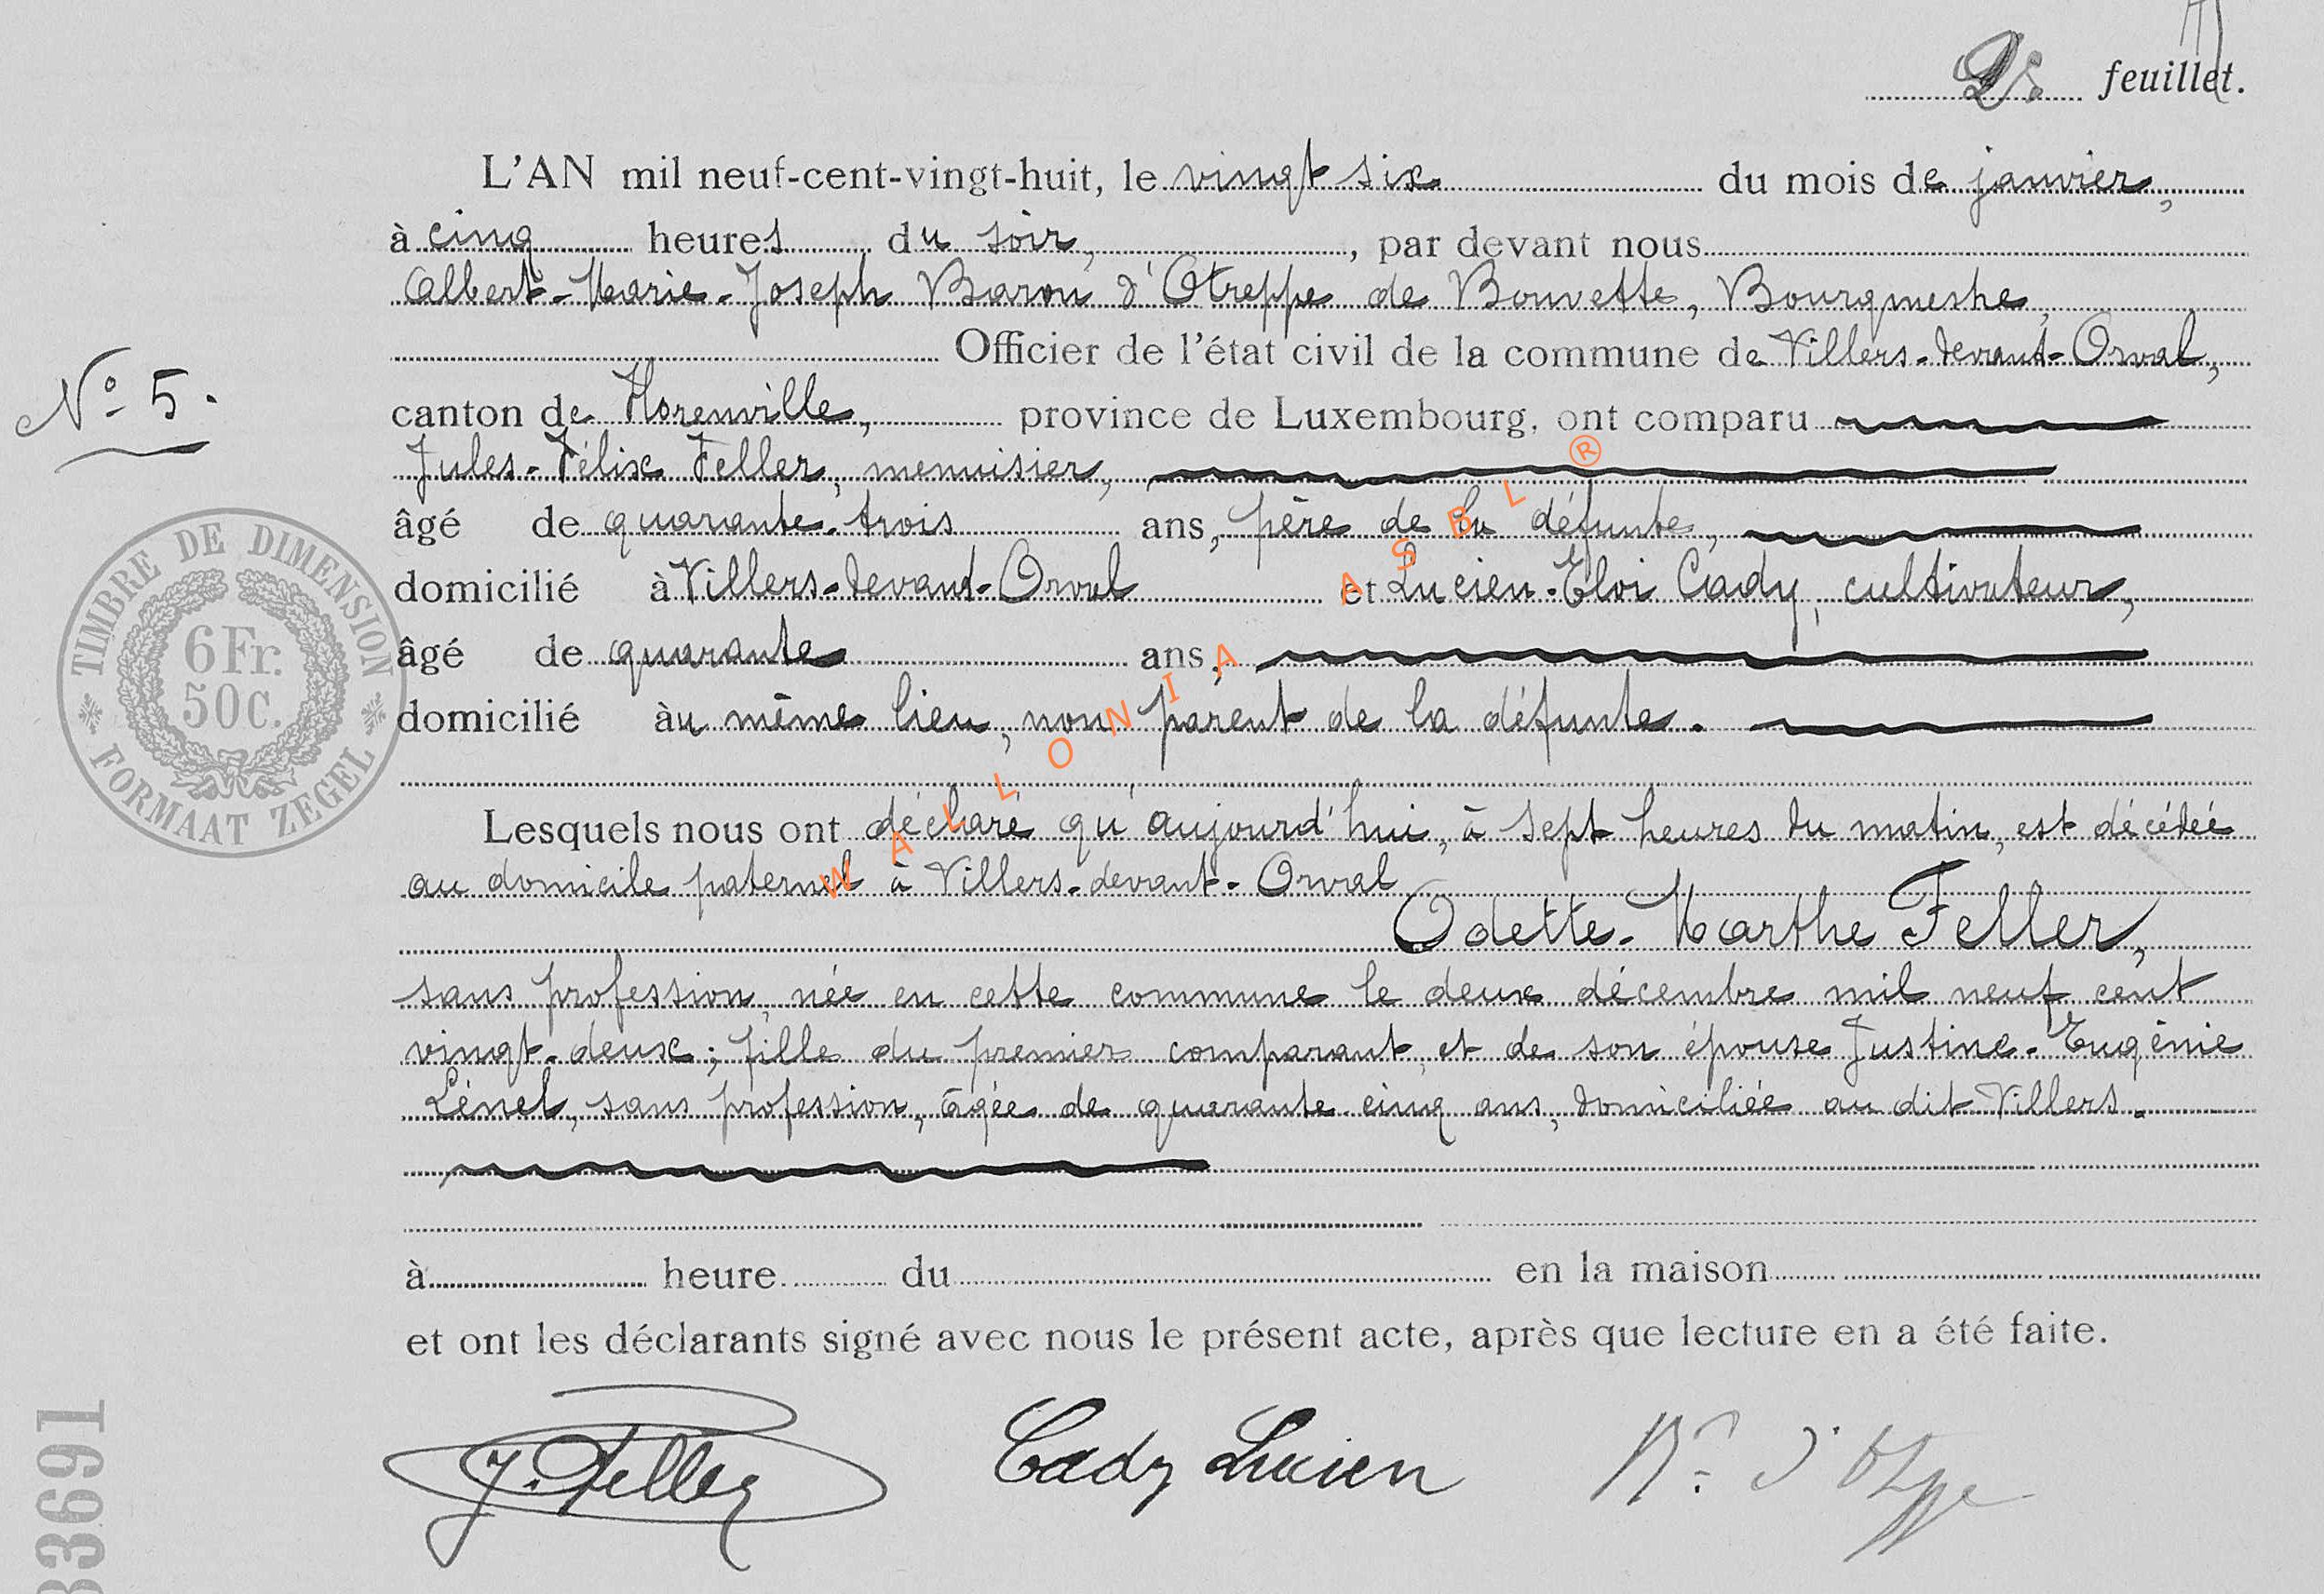 feuillet.
L'AN mil neuf-cent-vingt-huit, le vingt six du mois de janvier,
à cinq heures du soir, , par devant nous
Albert-Marie-Joseph Baron d'Otreppe de Bouvette, Bourgmestre,
Officier de l'état civil de la commune de Villers-devant-Orval,
N° 5.
canton de Florenville, province de Luxembourg, ont comparu
Jules-Félix Feller, menuisier,
âgé de quarante-trois ans, père de la défunte,
domicilié à Villers-devant-Orval et Lucien-Eloi Cady, cultivateur,
âgé de quarante ans,
domicilié au même lieu, non parent de la défunte.
Lesquels nous ont déclaré qu'aujourd'hui, à sept heures du matin, est décédée
au domicile paternel à Villers-devant-Orval
Odette-Marthe Feller,
sans profession, née en cette commune le deux décembre mil neuf cent
vingt-deux; fille du premier comparant, et de son épouse Justine-Eugénie
Lénel, sans profession, âgée de quarante cinq ans, domiciliée au dit Villers.
à heure du en la maison
et ont les déclarants signé avec nous le présent acte, après que lecture en a été faite.
J. Feller Cady Lucien Bon d'Otreppe
TIMBRE DE DIMENSION
6Fr.
50c.
FORMAAT ZEGEL
WALLONIA ASBL ®
33691